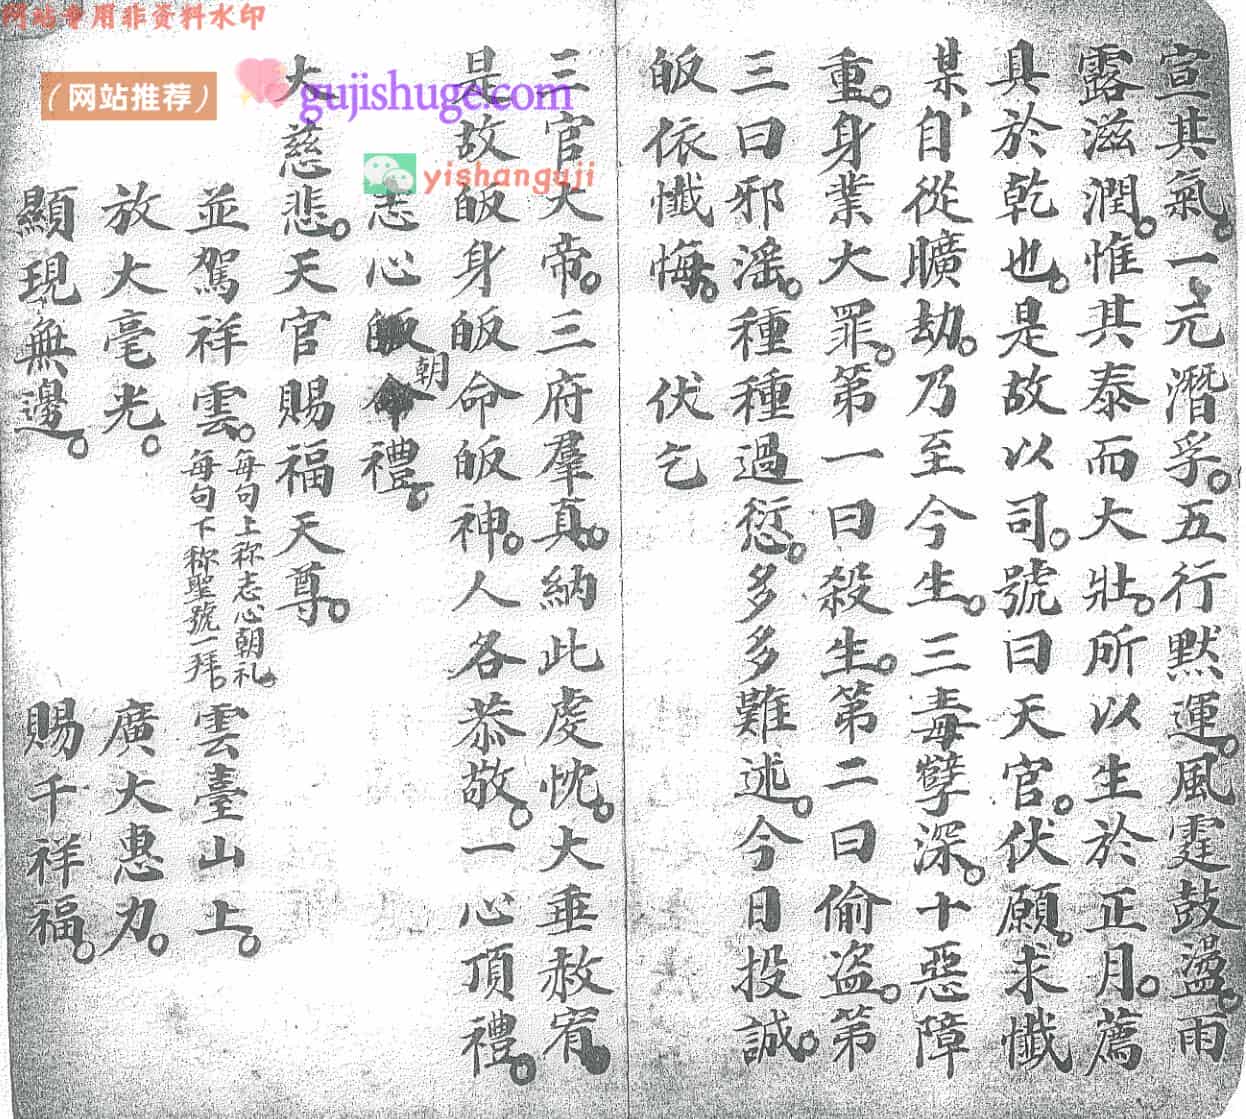 网站专用非资料水印
（网站推荐）
gujishuge.com
yishanguji
宣其氣。一元潛孚。五行默運。風霆鼓盪。雨
露滋潤。惟其泰而大壯。所以生於正月。薦
具於乾也。是故以司。號曰天官。伏願。求懺
某自從曠劫。乃至今生。三毒孽深。十惡障
重。身業大罪。第一曰殺生。第二曰偷盗。第
三曰邪滛。種種過愆。多多難述。今日投誠。
皈依懺悔。伏乞
三官大帝。三府羣真。納此虔忱。大垂赦宥。
是故皈身皈命皈神。人各恭敬。一心頂禮。
志心朝禮。
大慈悲。天官賜福天尊。
並駕祥雲。每句上称志心朝礼。每句下称聖號一拜。雲臺山上。
放大毫光。廣大惠力。
顯現無邊。賜千祥福。